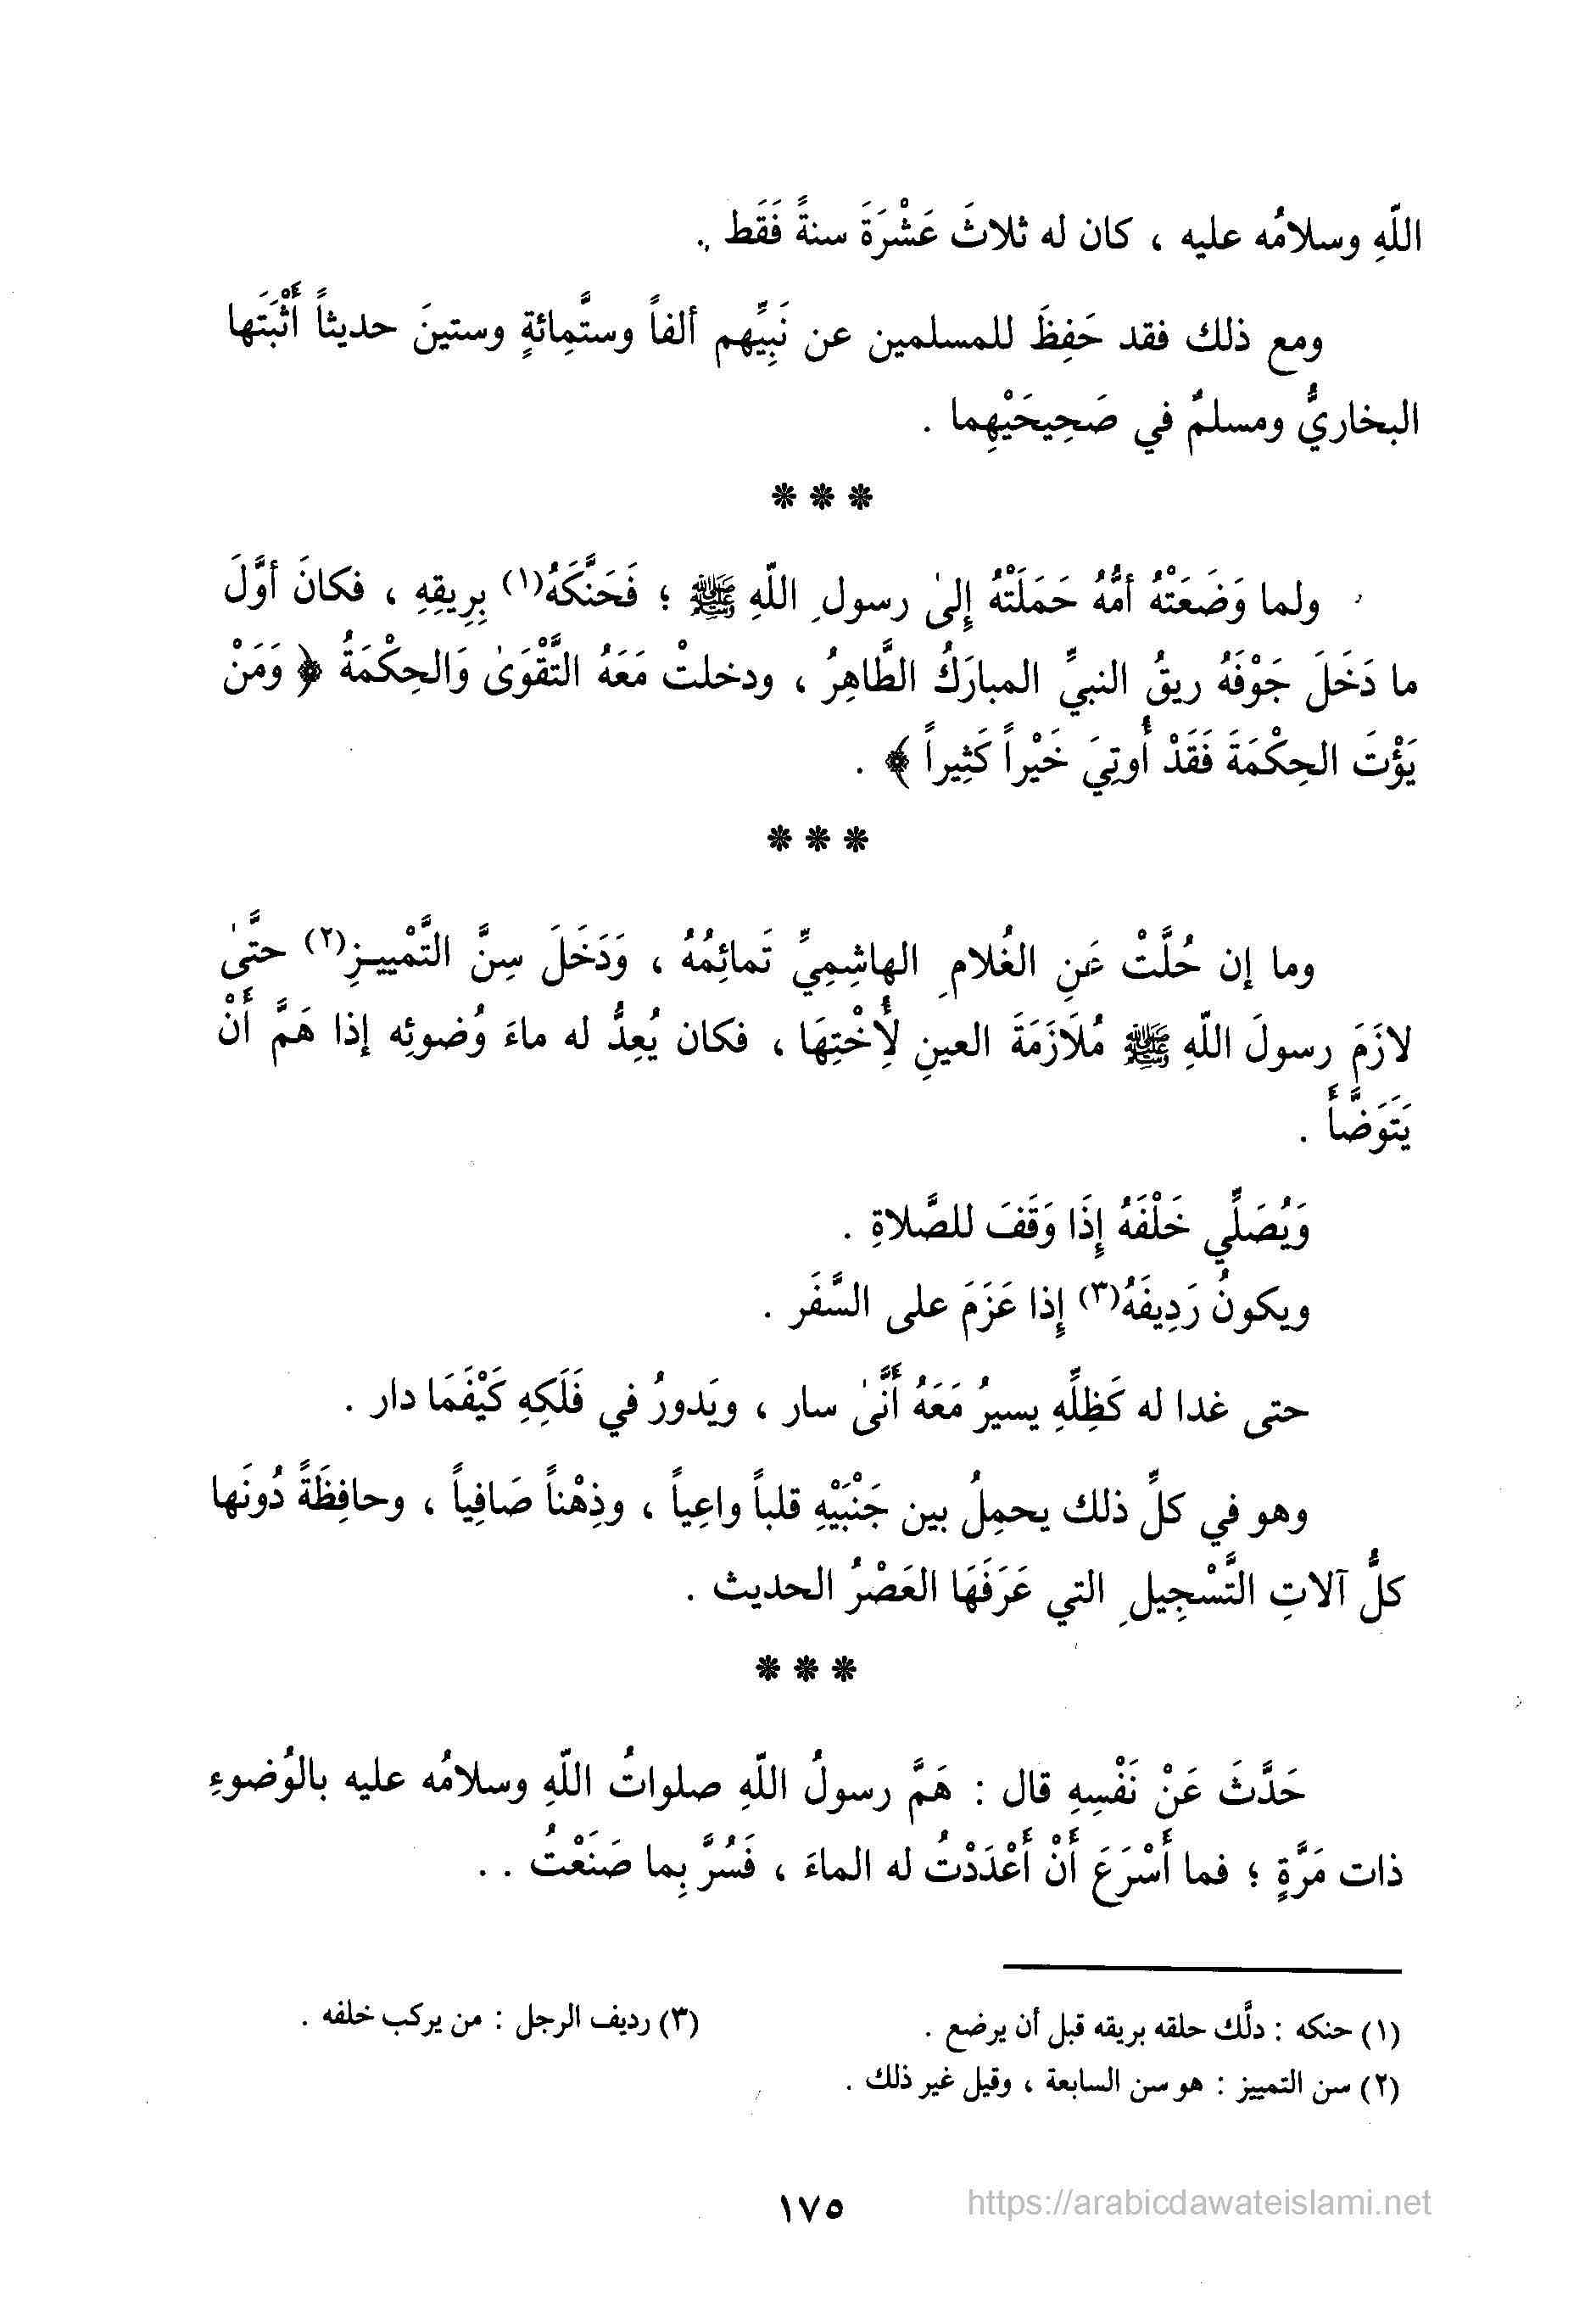 اللّهِ وسلامُه عليه ، كان له ثلاثَ عَشْرَةَ سنةً فَقَط .
ومع ذلك فقد حَفِظَ للمسلمين عن نَبِيِّهم ألفاً وستَّمِائةٍ وستينَ حديثاً أَثْبَتَها
البخاريُّ ومسلمٌ في صَحِيحَيْهِما .
* * *
ولما وَضَعَتْهُ أمُّهُ حَمَلَتْهُ إِلىٰ رسولِ اللّهِ ﷺ ؛ فَحَنَّكَهُ(١) بِرِيقِهِ ، فكانَ أوَّلَ
ما دَخَلَ جَوْفَهُ ريقُ النبيِّ المبارَكُ الطَّاهِرُ ، ودخلتْ مَعَهُ التَّقْوَىٰ وَالحِكْمَةُ ﴿ وَمَنْ
يَؤْتَ الحِكْمَةَ فَقَدْ أُوتِيَ خَيْراً كَثِيراً ﴾ .
* * *
وما إن حُلَّتْ عَنِ الغُلامِ الهاشِمِيِّ تَمائِمُهُ ، وَدَخَلَ سِنَّ التَّمْييـزِ(٢) حتَّىٰ
لازَمَ رسولَ اللّهِ ﷺ مُلَازَمَةَ العينِ لِأُخْتِهَا ، فكان يُعِدُّ له ماءَ وُضوئِه إذا هَمَّ أَنْ
يَتَوَضَّأَ .
وَيُصَلِّي خَلْفَهُ إِذَا وَقَفَ للصَّلاةِ .
ويكونُ رَدِيفَهُ(٣) إِذا عَزَمَ على السَّفَر .
حتى غدا له كَظِلِّهِ يسيرُ مَعَهُ أَنَّىٰ سار ، ويَدورُ في فَلَكِهِ كَيْفَمَا دار .
وهو في كلِّ ذلك يحمِلُ بين جَنْبَيْهِ قلباً واعِياً ، وذِهْناً صَافِياً ، وحافِظَةً دُونَها
كلُّ آلاتِ التَّسْجِيلِ التي عَرَفَهَا العَصْرُ الحديث .
* * *
حَدَّثَ عَنْ نَفْسِهِ قال : هَمَّ رسولُ اللّهِ صلواتُ اللّهِ وسلامُه عليه بالوُضوءِ
ذات مَرَّةٍ ؛ فما أَسْرَعَ أَنْ أَعْدَدْتُ له الماءَ ، فَسُرَّ بِما صَنَعْتُ . .
(١) حنكه : دلَّك حلقه بريقه قبل أن يرضع .
(٢) سن التمييز : هو سن السابعة ، وقيل غير ذلك .
(٣) رديف الرجل : من يركب خلفه .
١٧٥
https://arabicdawateislami.net